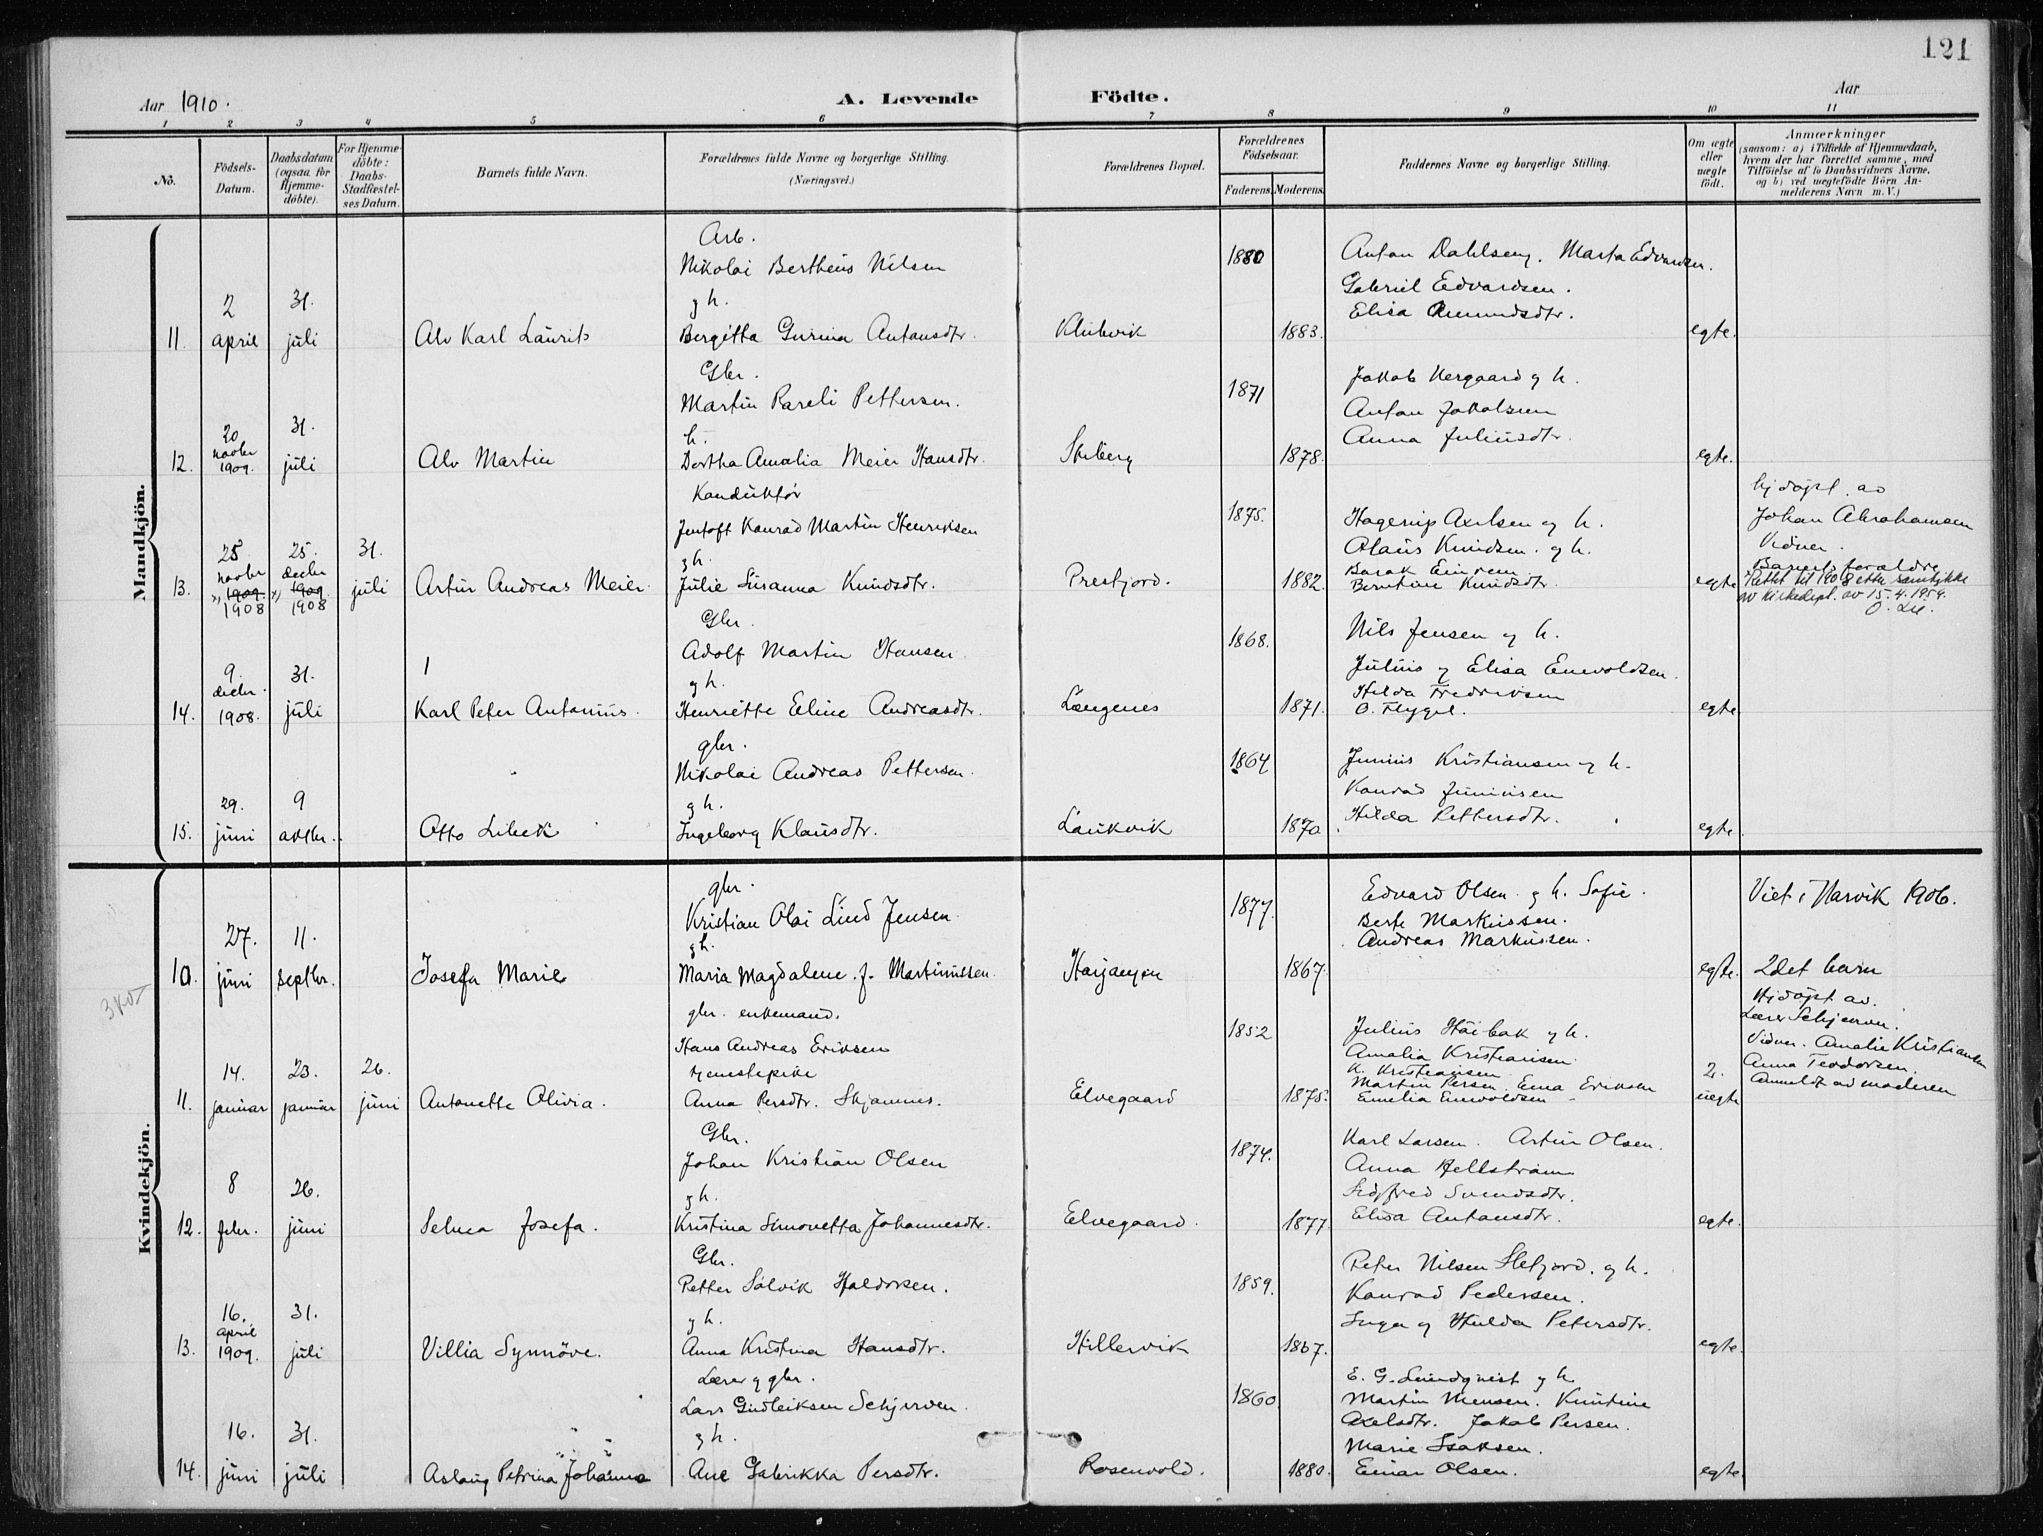 121
Aar 1910.
A. Levende Födte.
Aar
1 2 3 4 5 6 7 8 9 10 11
No.
Födsels-Datum.
Daabsdatum (ogsaa for Hjemme-döbte).
For Hjemme-döbte: Daabs-Stadfæstel-ses Datum.
Barnets fulde Navn.
Forældrenes fulde Navne og borgerlige Stilling. (Næringsvei.)
Forældrenes Bopæl.
Forældrenes Födselsaar.
Faderens. Moderens.
Faddernes Navne og borgerlige Stilling.
Om ægte eller uægte födt.
Anmærkninger
(saasom: a) i Tilfælde af Hjemmedaab, hvem der har forrettet samme, med Tilföielse af to Daabsvidners Navne, og b) ved uægtefödte Börn An-melderens Navn m. V.)
Mandkjön.
Arb.
Nikolai Bertheus Nilsen
1880
Anton Dahlseng. Marta Edvardsen.
Gabriel Edvardsen.
2 31. g h.
Elisa Amundsdtr.
11. april juli Alv Karl Laurits Bergitta Gurina Antonsdtr. Klubvik 1883. egte.
Gbr.
Martin Pareli Pettersen.
1871
Jakob Nergaard g h.
Anton Jakobsen
20 31. h.
Anna Juliusdtr.
12. novbr 1909. juli Alv Martin Dortha Amalia Meier Hansdtr. Stiberg 1878. egte.
Konduktör
Jentoft Konrad Martin Henriksen
1875.
Hagerup Axelsen og h.
Olaus Knudsen. g h.
hjdöpt. av
Johan Abrahamsen
Vidner.
Barnets foraldre
25 25. 31. g h.
13. novbr x) 1909. 1908 decbr x) 1909 1908 juli Artur Andreas Meier. Julie Susanna Knudsdtr. Prestjord. 1882. Berntine Knudsdtr. egte
Rettet til 1908 etter samtykke
av Kirkedept. av 15.4.1954.
O. Lie.
Gbr.
Adolf Martin Hansen.
1868.
Nils Jensen og h.
Julius g Elisa Enevoldsen.
9. 31. 1 g h.
Hilda Fredriksen
14. decbr. 1908. juli Karl Peter Antonius. Henriette Eline Andreasdtr. Længenes 1871. O. Flygel. egte
gbr.
Nikolai Andreas Pettersen.
1864
Junius Kristiansen og h.
Konrad Juniusen
29. 9 g h.
15. juni oktbr. Otto Libek Ingeborg Klausdtr. Laukvik 1870. Hilda Pettersdtr. egte
Kvindekjön.
gbr.
Kristian Olai Lind Jensen.
1877.
Edvard Olsen. g h. Sofie.
Berte Markussen.
Andreas Markussen.
Viet i Narvik 1906.
27. 11. g h.
10. juni septbr. Josefa Marie Maria Magdalene f. Martinussen. 1867. egte. 2det barn
gbr. enkemand.
Hans Andreas Eriksen
tjenestepike
1852
Julius Höibak g h.
Amalia Kristiansen.
K. Kristiansen
Hjdöpt av.
Lærer Schjerven.
Vidner. Amalie Kristiansen
Anna Teodorsen.
Anmeldt av moderen
14. 23. 26.
Martin Persen. Erna Eriksen
2.
11. januar januar juni Antonette Olivia. Anna Persdtr. Skjomnes. Elvegaard 1875. Emelia Enevoldsen uegte
Gbr.
Johan Kristian Olsen
1874.
Karl Larsen. Artur Olsen.
Anna Hellstrøm
Sigfred Svendsdtr.
8 26. g h.
12. febr. juni Selma Josefa. Kristina Simonetta Johannesdtr. Elvegaard. 1877 Elisa Antonsdtr. egte.
Gbr.
Petter Solvik Haldorsen.
1859.
Peter Nilsen Slefjord. g h.
Konrad Pedersen.
16. 31. g h.
Inga g Hulda Petersdtr.
13. april 1909. juli Villia Synnöve. Anna Kristina Hansdtr. Hillervik 1867. egte.
Lærer g gbr.
Lars Gudleiksen Schjerven.
1860.
E. G. Lundqvist g h
Martin Monsen. Kristine
Axelsdtr. Jakob Persen.
Marie Isaksen.
16. 31. g h.
14. juni juli Aslaug Petrina Johanna Ane Gabrikka Persdtr. Rosenvold. 1880. Einar Olsen. egte